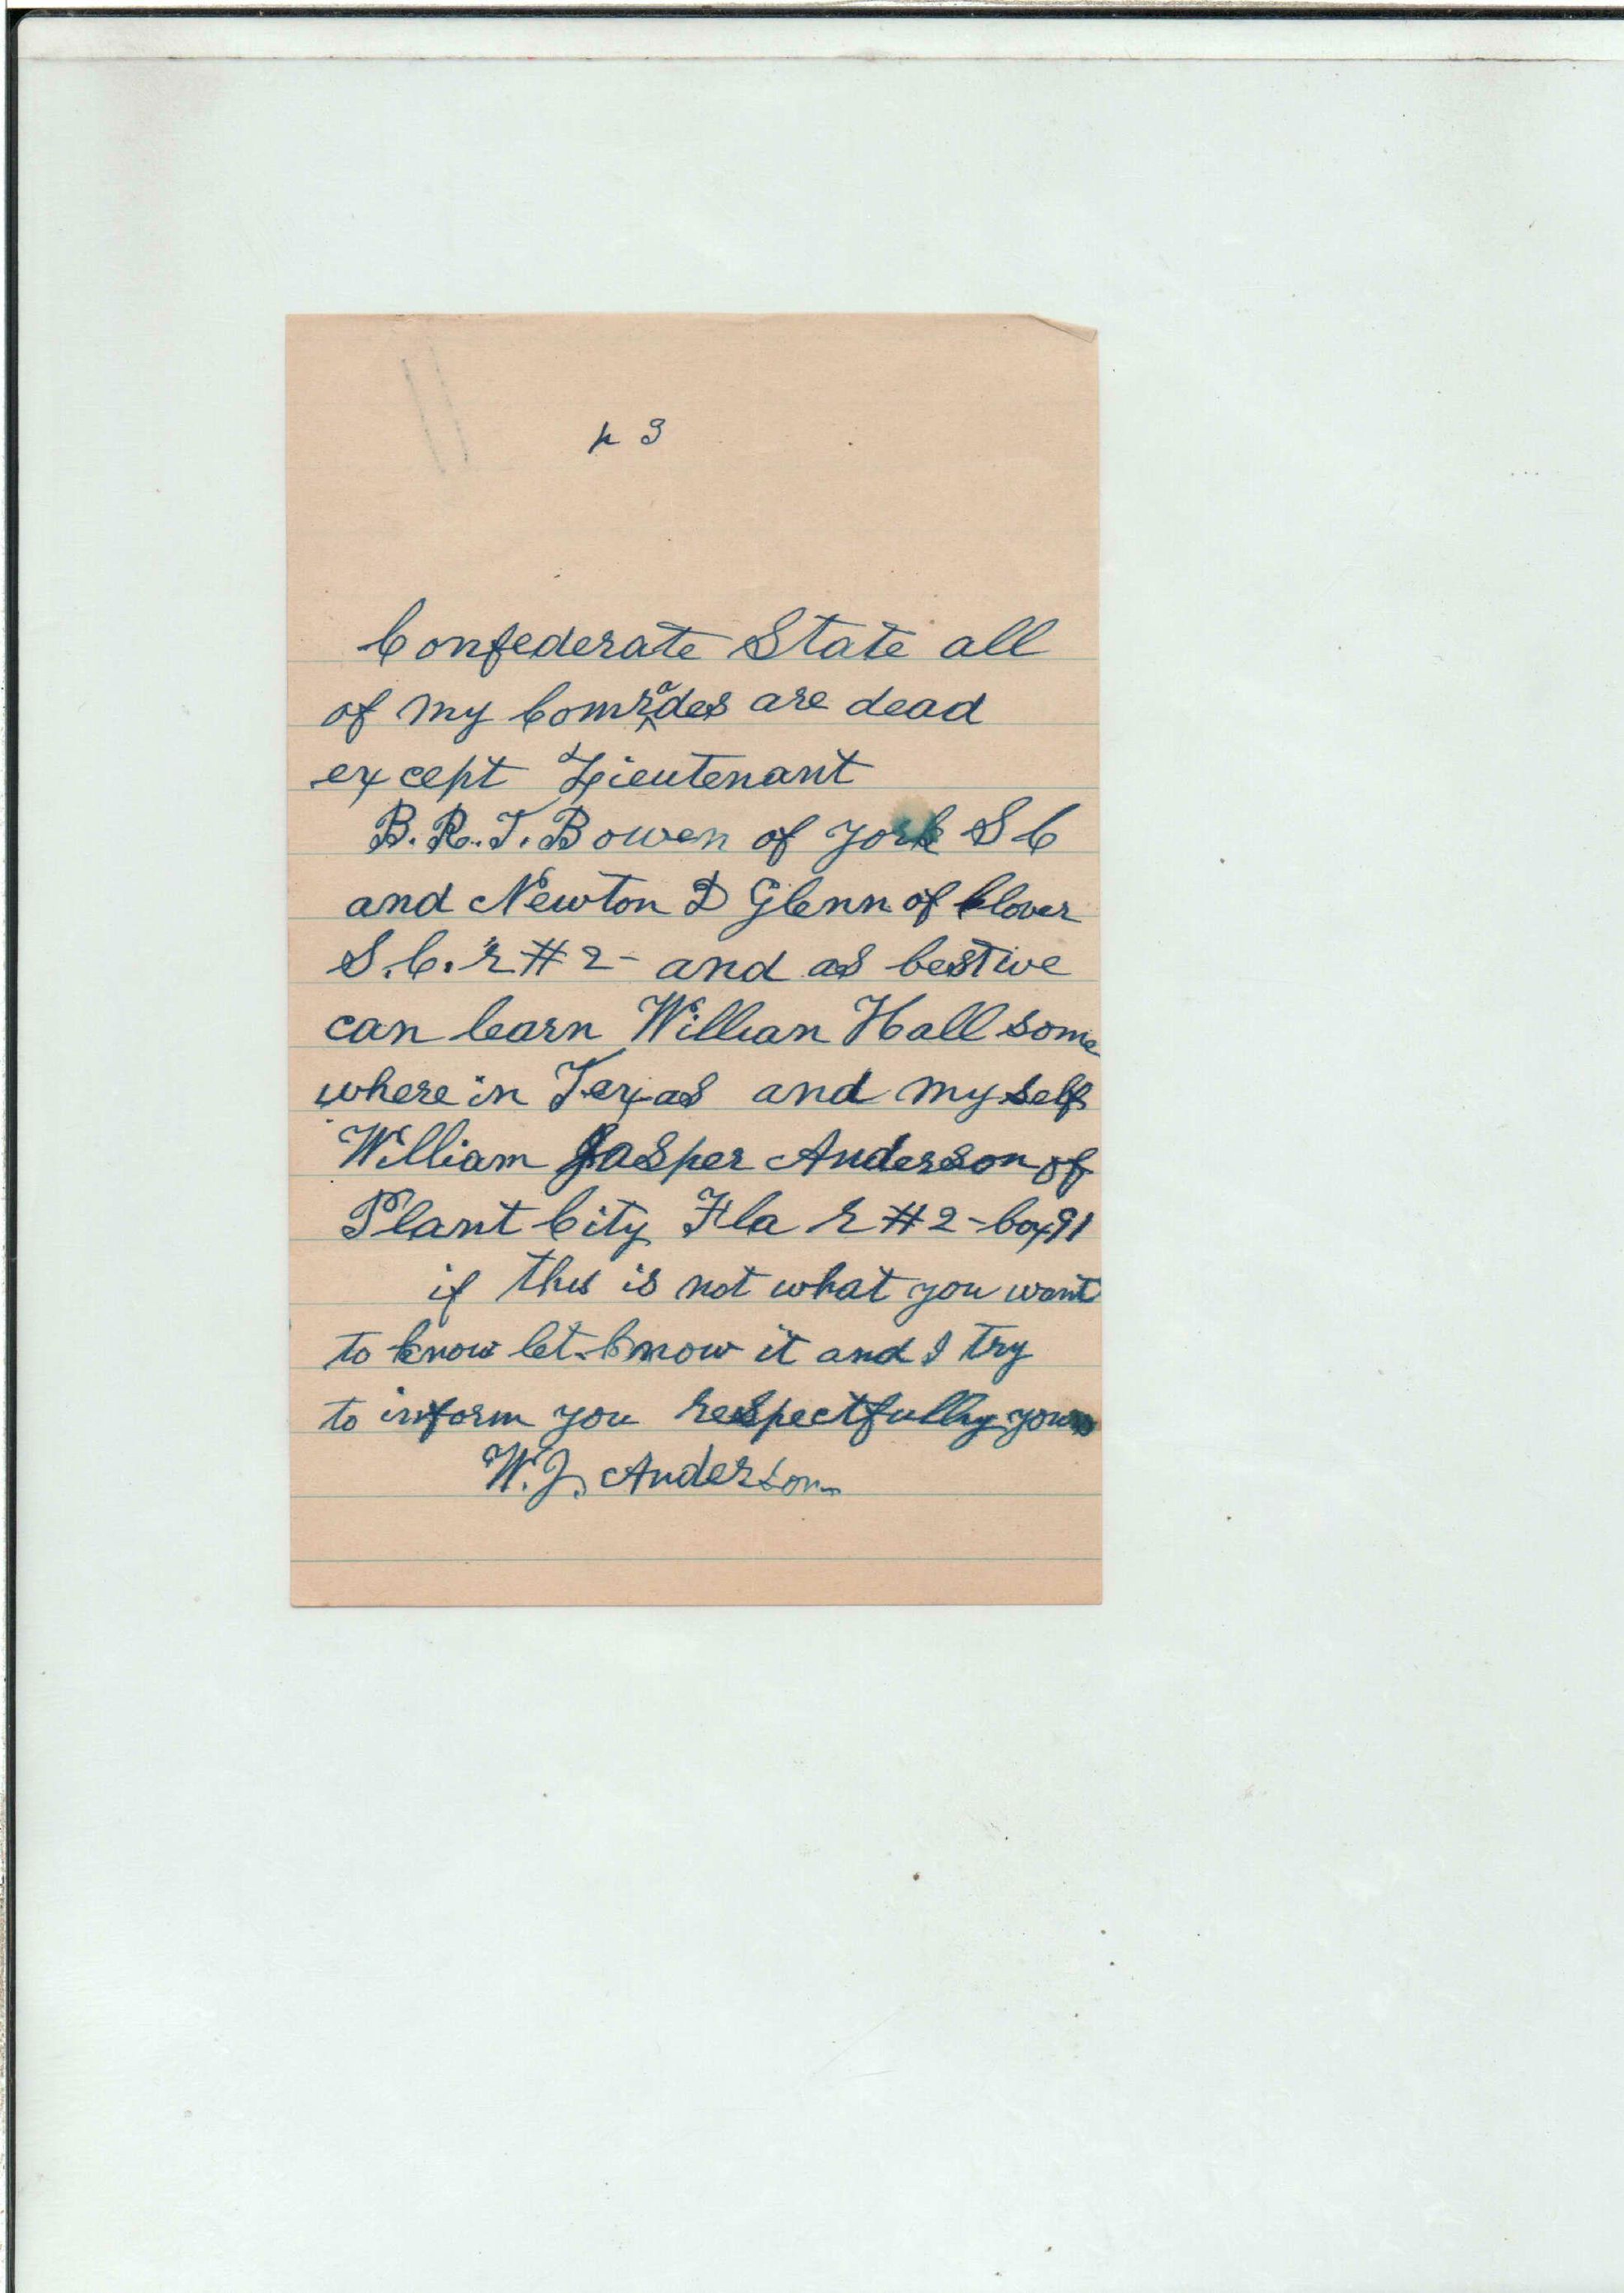 p 3
Confederate State all
of my Comrades are dead
except Lieutenant
B. R. T. Bowen of York S C
and Newton D Glenn of Clover
S. C. r # 2 - and as best we
can learn William Hall some
where in Texas and my self
William Jasper Anderson of
Plant City Fla r # 2 - box 91
if this is not what you want
to know let know it and I try
to inform you respectfully yours
W. J. Anderson